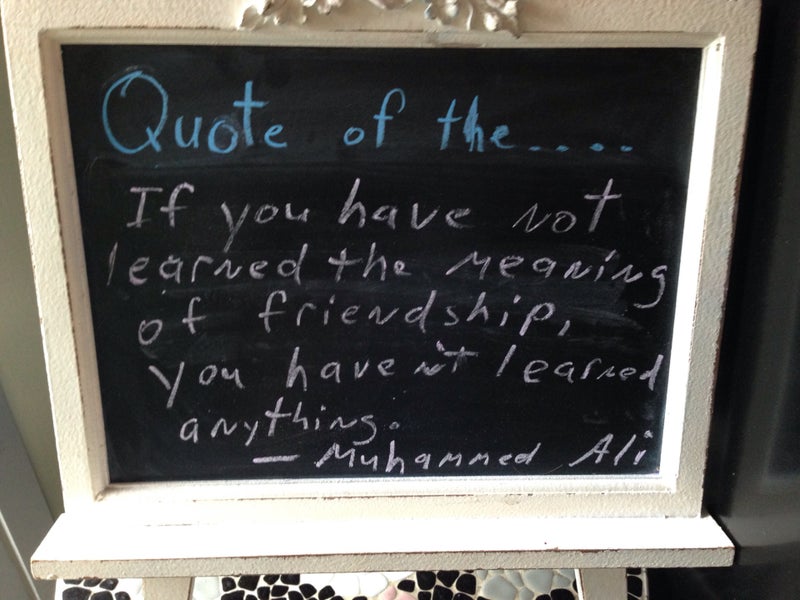 Quote of the....
If you have not
learned the meaning
of friendship,
you haven't learned
anything.
- Muhammed Ali